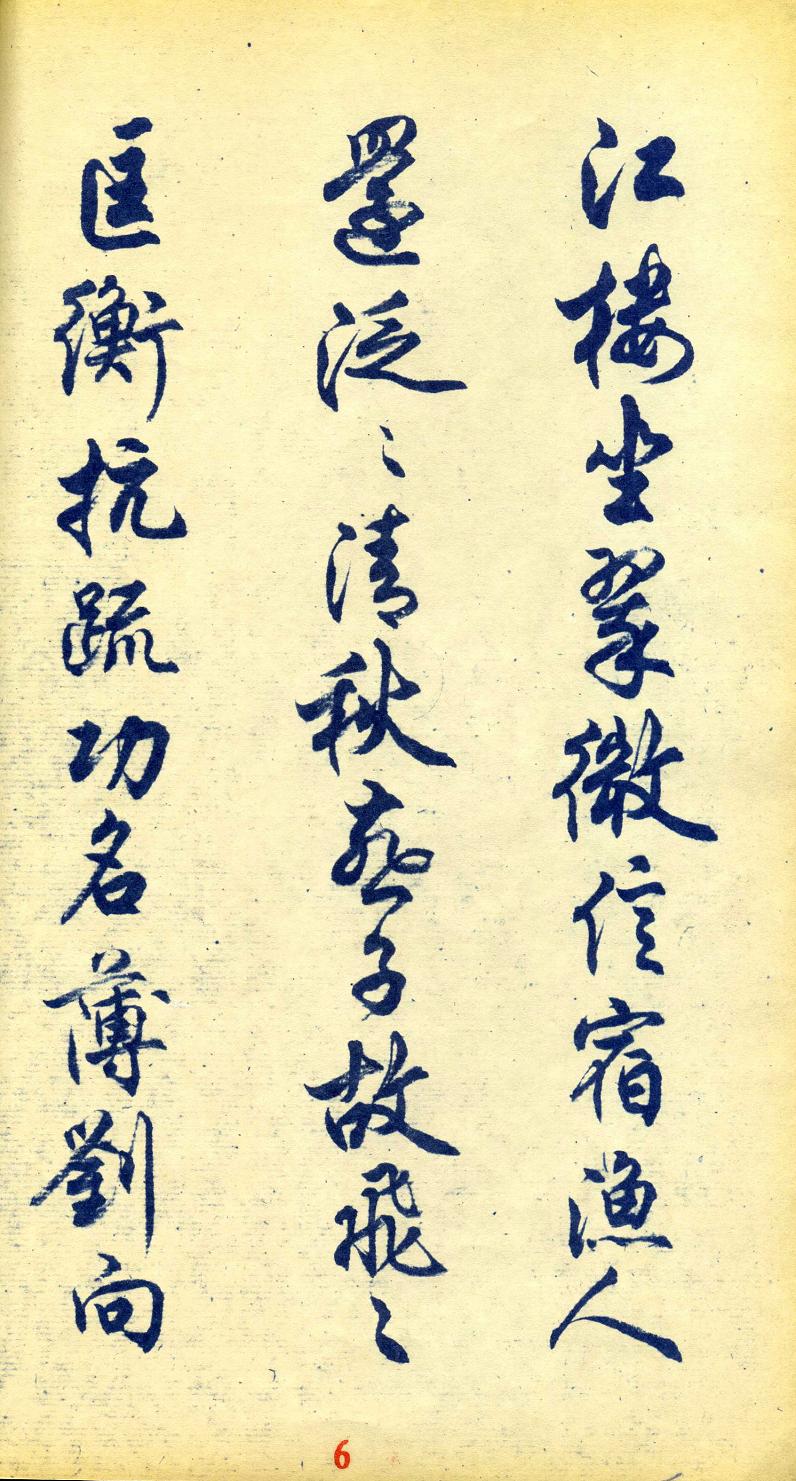 江樓坐翠微信宿漁人
還泛〻清秋燕子故飛〻
匡衡抗疏功名薄劉向
6